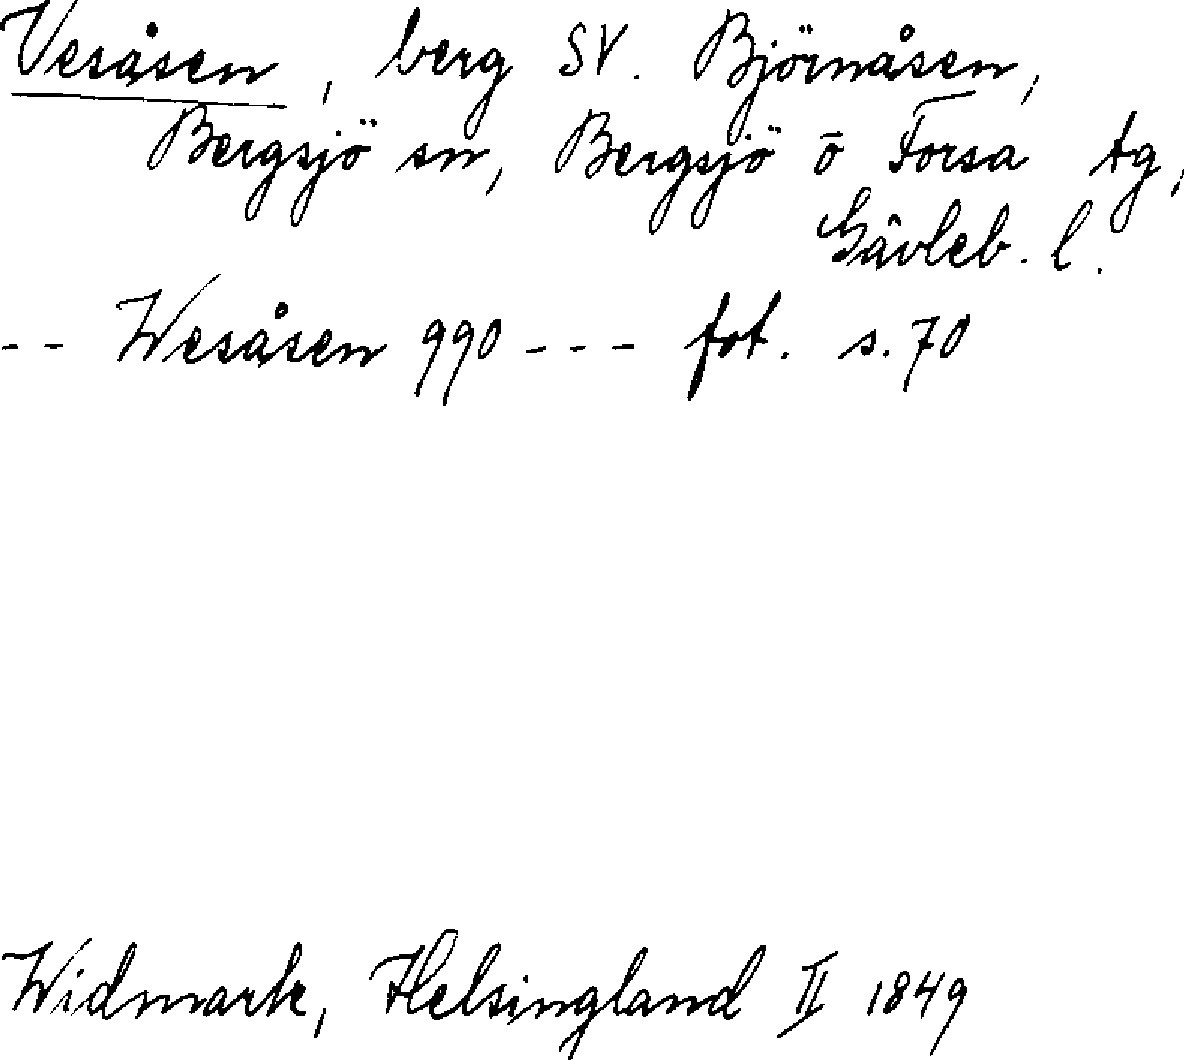 Vesåsen, berg SV. Björnåsen,
Bergsjö sn, Bergsjö o Forsa tg,
Gävleb. l.
-- Wesåsen 990 --- fot. s. 70
Widmark, Helsingland II 1849